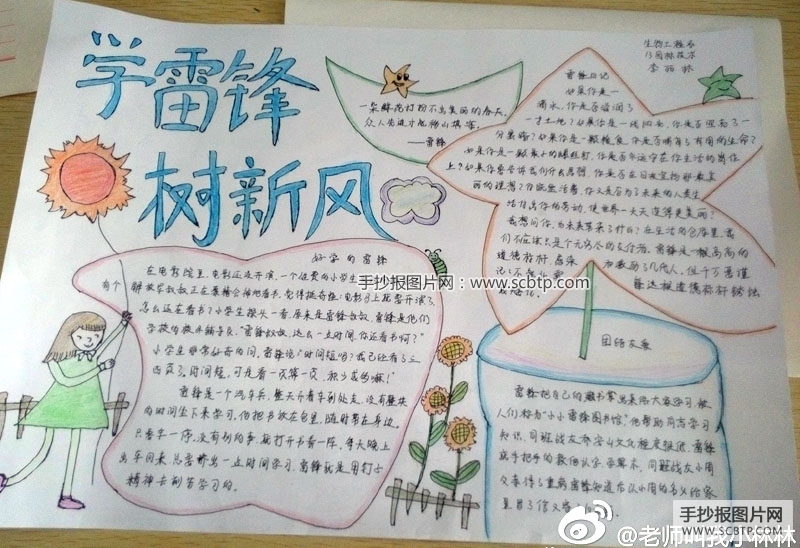 学雷锋
树新风
一朵鲜花打扮不出美丽的春天,
众人先进才能移山填海。
——雷锋
生物工程系
李
雷锋日记
如果你是一
滴水,你是否滋润了
一寸土地?如果你是一线阳光,你是否照亮了一
分黑暗?如果你是一颗粮食,你是否哺育了有用的生命?
如果你是一颗最小的螺丝钉,你是否永远守在你生活的岗位
上?如果你要告诉我们什么思想,你是否在日夜宣扬那最美
丽的理想?你既然活着,你又是否为了未来的人类生
活付出你的劳动,使世界一天天变得更美丽?
我想问你,为未来带来了什么?在生活的仓库里,我
们不应该只是个无穷尽的支付者。雷锋是一根高高的
道德标杆
好学的雷锋
在电影院里,电影还没开演,一个佳贵的小学生
看见解放军叔叔正在聚精会神地看书,觉得挺奇怪:电影马上就要开演了,
怎么还在看书?小学生探头一看,原来是雷锋叔叔,雷锋是他们
学校的校外辅导员。"雷锋叔叔,这么一点时间,你还看书啊?"
小学生非常好奇的问,雷锋说:"时间短吗?我已经看了三
四页了。时间短,可是看一页算一页,积少成多嘛!"
雷锋是一个汽车兵,整天开着车到处走,没有整块
的时间坐下来学习,他把书放在包里,随时带在身边。
只要车一停,没有别的事,就打开书看一阵。每天晚上
出车回来,总要挤出一点时间学习,雷锋就是用钉子
精神去刻苦学习的。
团结友爱
雷锋把自己的藏书拿出来供大家学习,被
人们称为"小小雷锋图书馆"。他帮助同志学习
知识,同班战友乔安山文化程度很低,雷锋
就手把手的教他认字、学算术,同班战友小周
父亲得了重病,雷锋知道后以小周的名义给家
里
手抄报图片网:www.scbtp.com
手抄报图片网
WWW.SCBTP.COM
@老师叫我小林林